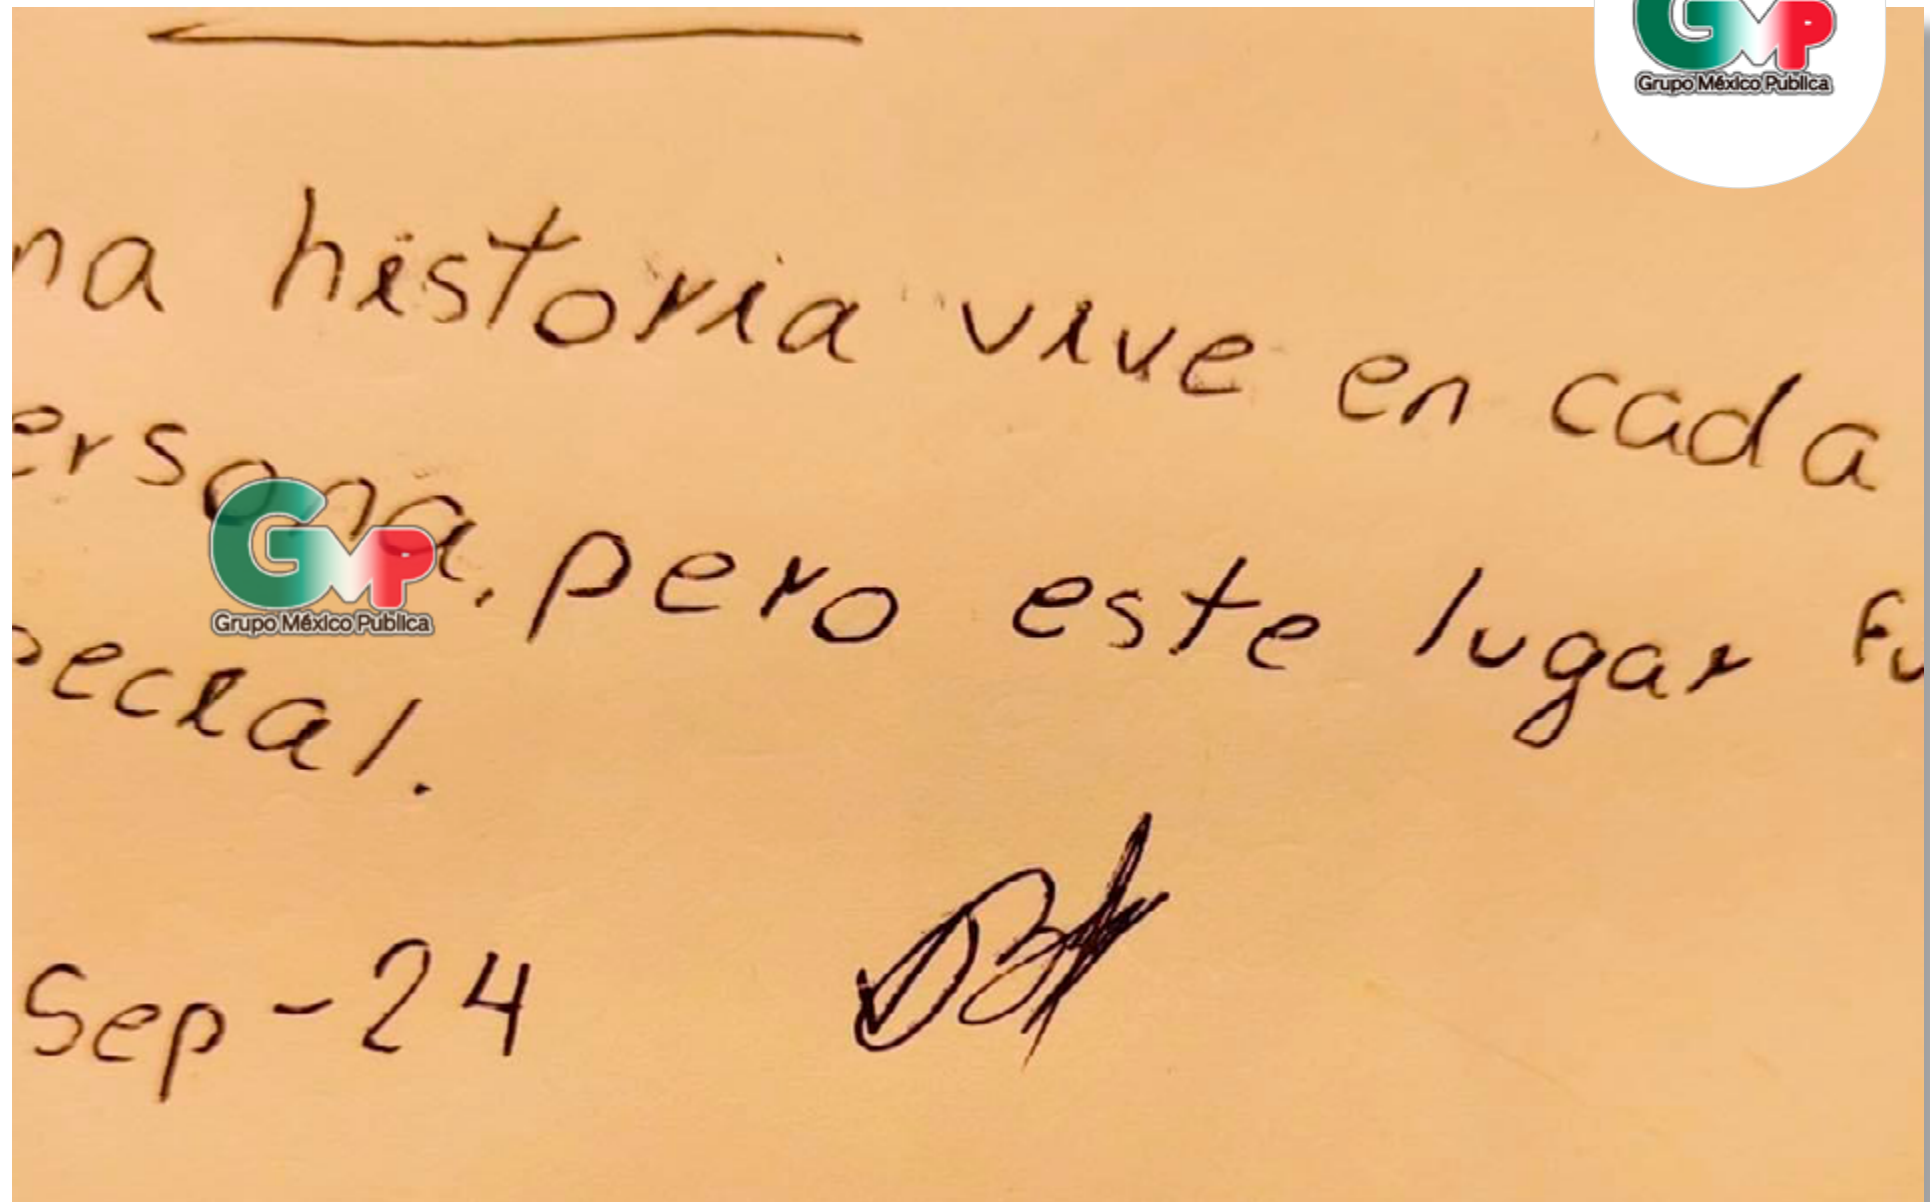 Grupo México Publica
na historia vive en cada
ersona, pero este lugar Fu
pecial.
Grupo México Publica
Sep-24